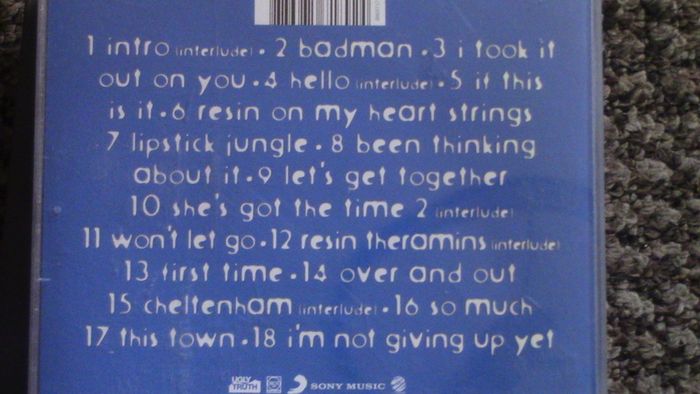 1 intro (interlude) • 2 badman • 3 i took it
out on you • 4 hello (interlude) • 5 if this
is it • 6 resin on my heart strings
7 lipstick jungle • 8 been thinking
about it • 9 let's get together
10 she's got the time 2 (interlude)
11 won't let go • 12 resin theramins (interlude)
13 first time • 14 over and out
15 cheltenham (interlude) • 16 so much
17 this town • 18 i'm not giving up yet
UGLY TRUTH SONY MUSIC